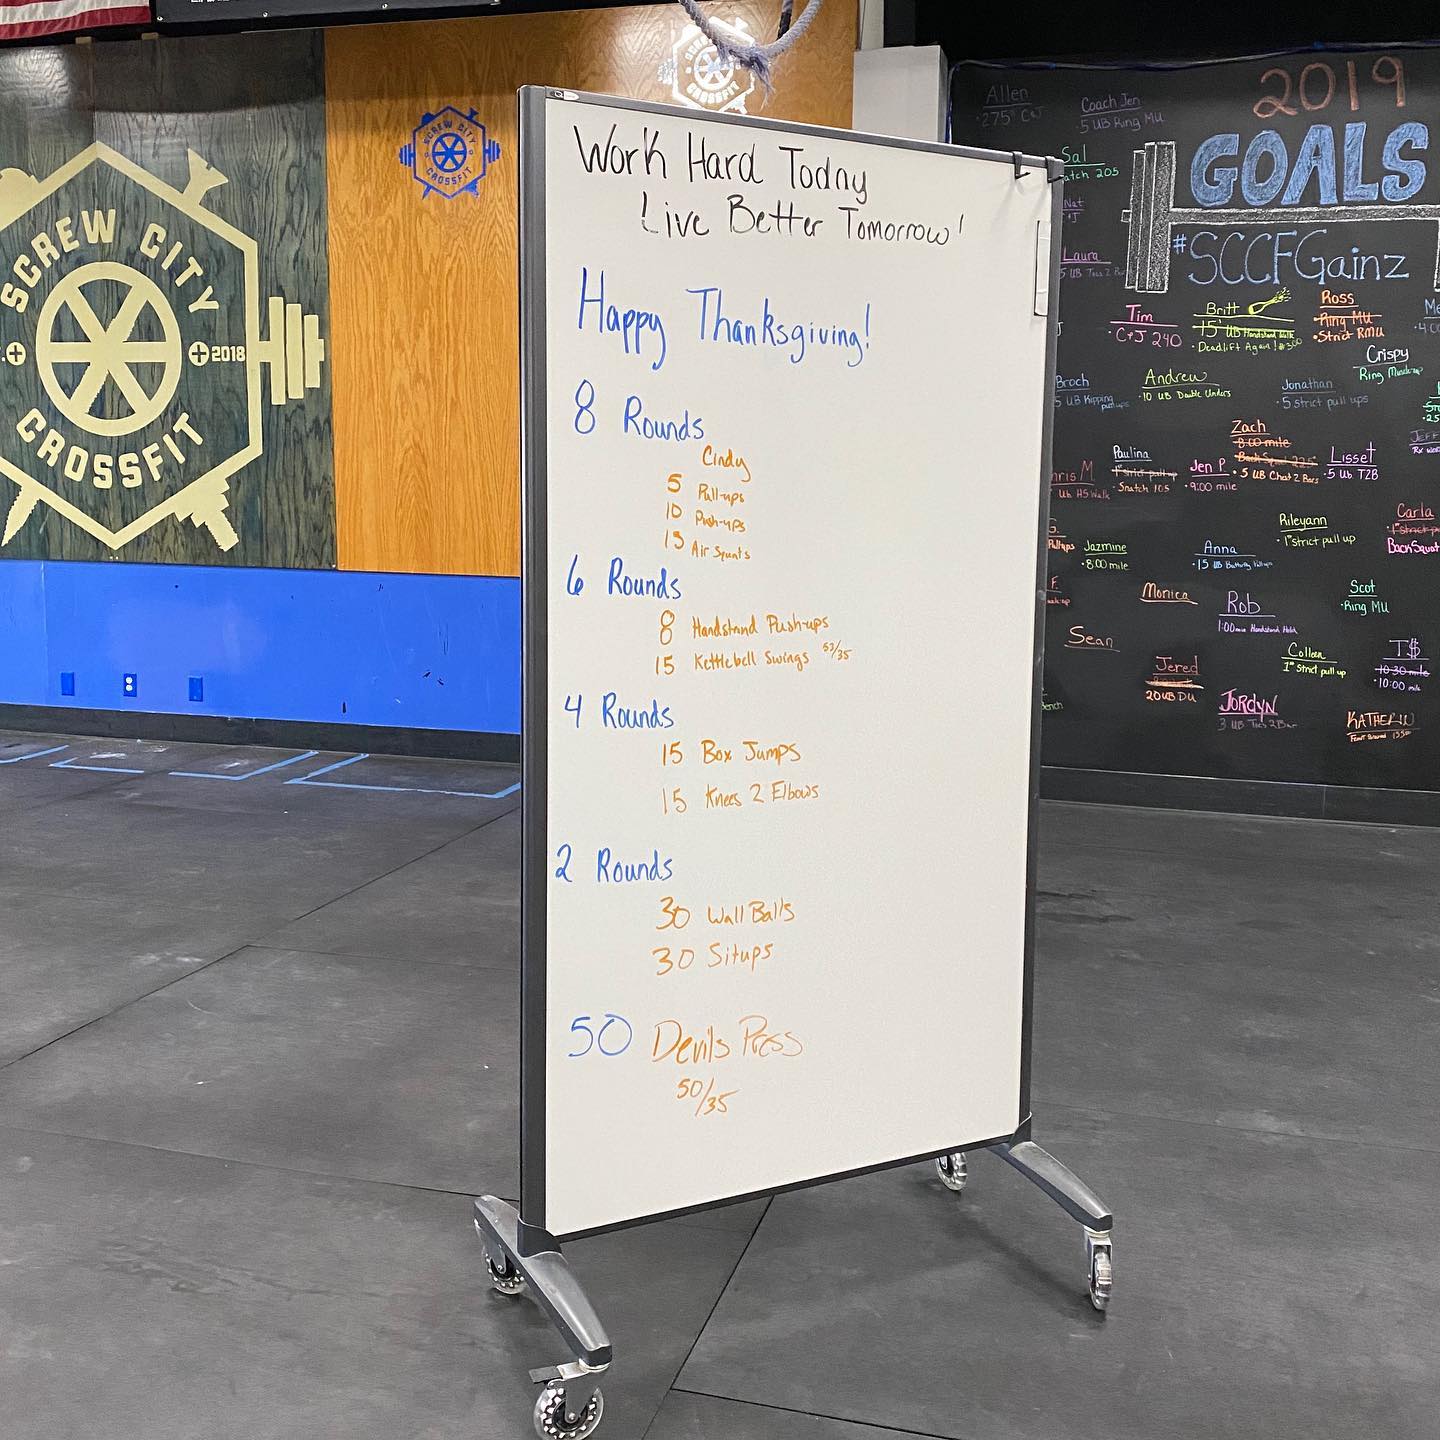 Work Hard Today
Live Better Tomorrow!
Happy Thanksgiving!
8 Rounds
Cindy
5 Pull-ups
10 Push-ups
15 Air Squats
6 Rounds
8 Handstand Push-ups
15 Kettlebell Swings 53/35
4 Rounds
15 Box Jumps
15 Knees 2 Elbows
2 Rounds
30 Wall Balls
30 Situps
50 Devils Press
50/35
SCREW CITY
2018
CROSSFIT
SCREW CITY
CROSSFIT
SCREW CITY
CROSSFIT
2019
GOALS
#SCCFGainz
Allen
·275# C&J
Coach Jen
·5 UB Ring MU
Sal
205
Nat
Laura
5 UB Toes 2
Tim
·C&J 240
Britt
·15' UB Handstand Walk
·Deadlift Again! #300
Ross
·Ring MU
·Strict RMU
Crispy
Ring
Broch
5 UB Kipping
Andrew
·10 UB Double Unders
Jonathan
·5 strict pull ups
Zach
8:00 mile
Back Squat 225
·5 UB Chest 2 Bars
Paulina
1st strict pull up
·Snatch 105
Jen P.
·9:00 mile
Lisset
·5 Ub T2B
M
Ub HS Walk
Rileyann
·1st strict pull up
Carla
Back Squat
Jazmine
·8:00 mile
Anna
·15 UB Butterfly
Monica
Rob
1:00 min Handstand Hold
Scot
·Ring MU
Sean
Colleen
1st Strict pull up
T$
10:30 mile
·10:00 mile
Jered
20 UB DU
JORDYN
3 UB Toes 2 Bar
KATHERIN